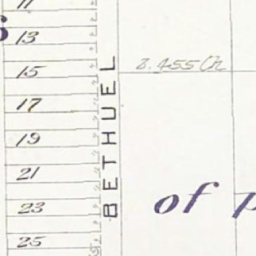 11
13
15
17
19
21
23
25
BETHUEL
2.455 Ch
of p